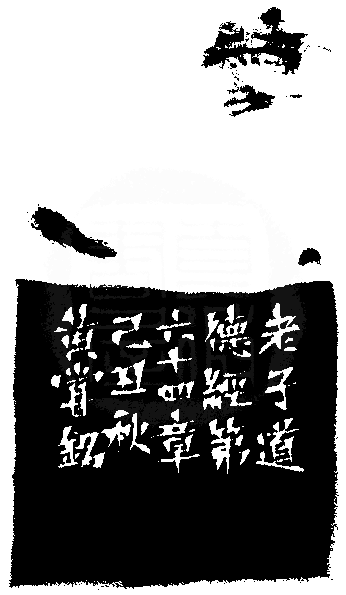 老子道
德經第
六十四章
己丑秋
黃嘗銘